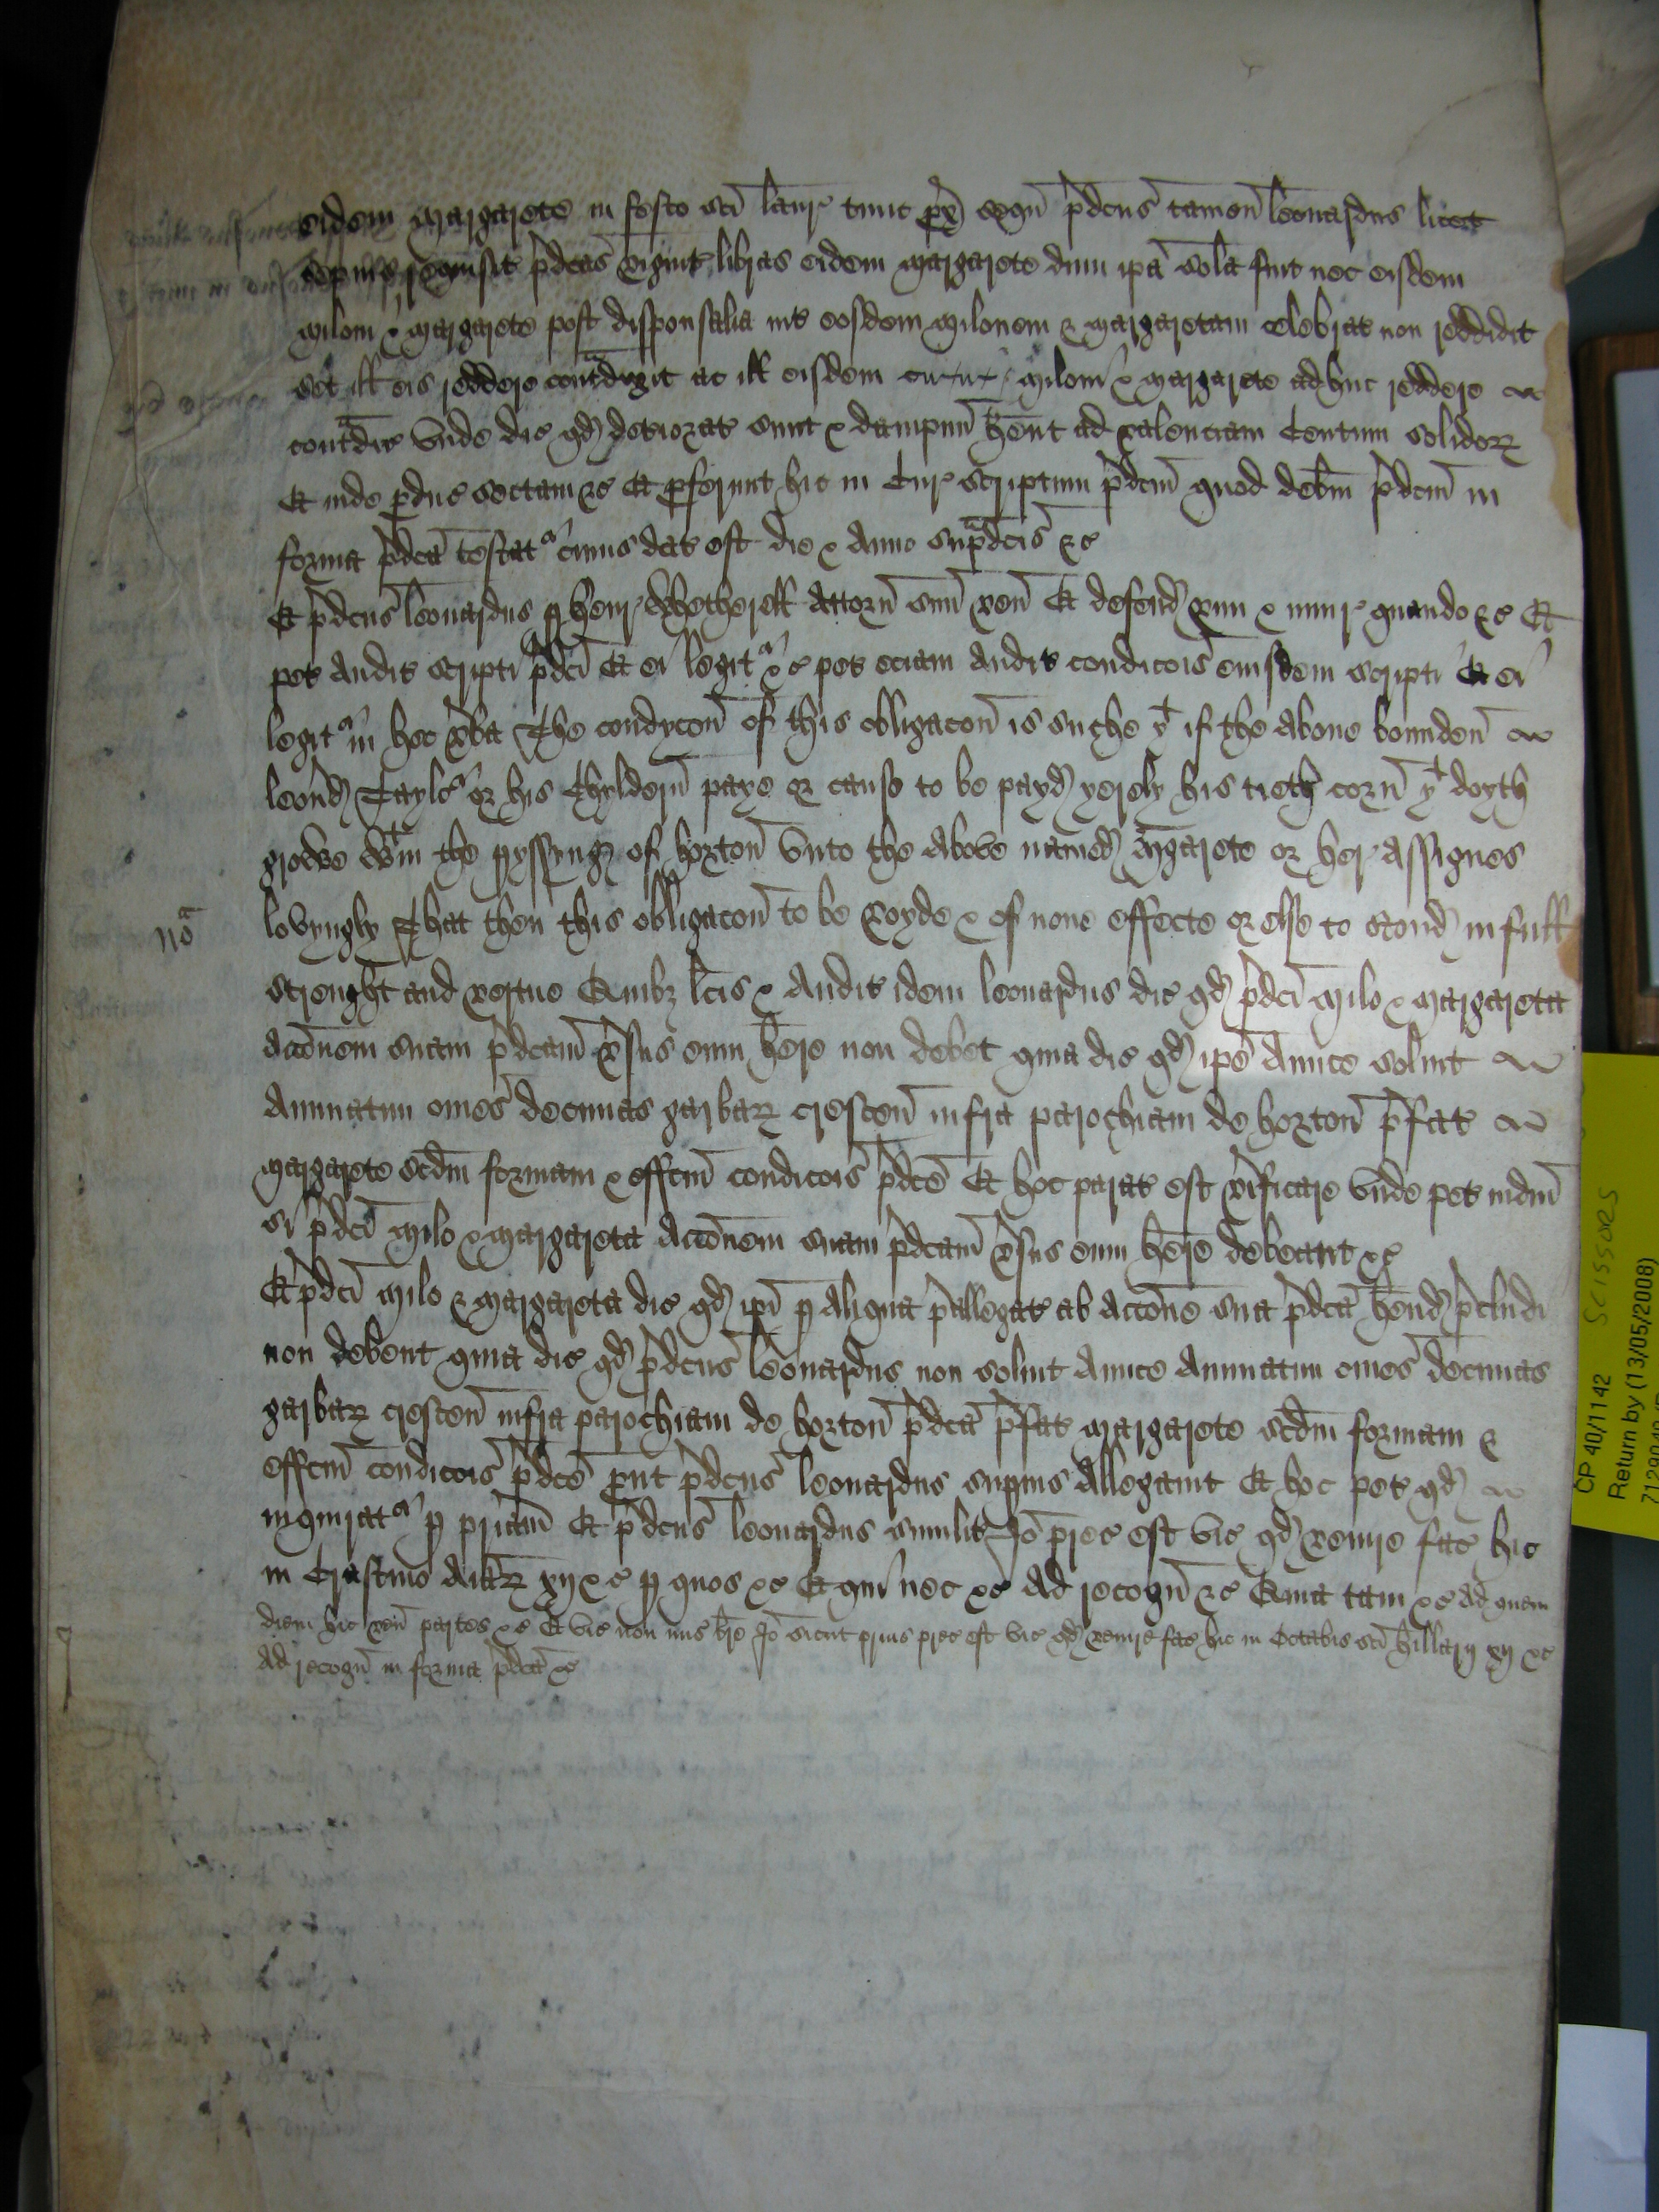 eidem Margarete in festo sci Laur' tunc px' sequ' p'dcus tamen Leonardus licet
sepius requisit' p'dcas viginti libras eidem Margarete dum ipa sola fuit nec eisdem
Miloni & Margarete post disponsalia int' eosdem Milonem & Margaretam celebrat' non reddidit
set ill' eis reddere contradixit ac ill' eisdem Miloni & Margarete adhuc reddere
contradic' vnde dic' qd' deteriorat' sunt & dampnu' hent ad valenciam Centum solidor'
Et inde p'duc' sectam &c Et p'ferunt hic in Cur' scriptum p'dcm quod debm p'dcm in
forma p'dca testat' cuius dat' est die & Anno sup'dcis &c
Et p'dcus Leonardus p Henr' Whetherell Attorn' suu' ven' Et defend' vim & iniur' quando &c Et
pet' Audit' scripti p'dci Et ei legit' &c pet' eciam Audit' condicois eiusdem scripti Et ei
legit' in hec v'ba The condycon' of this obligacon' is suche yt if the Aboue bounden'
Leon'd' Taylo' or his Chyldern' paye or cause to be payd' yerely his tieth corn' yt doyth
growe wtin the pyssyng' of Horton' vnto the Above named' M'garete or her Assignes
lovyngly That then this obligacon' to be voyde & of none effecte or else to stond' in full
strenght and vertue Quib3 lcis & Audit' idem Leonardus dic' qd' p'dci Milo & Margareta
Accionem suam p'dcam v'sus eum h'ere non debet quia dic' qd' ipe Amice soluit
Annuatim om'es decimas garbar' crescen' infra parochiam de Horton' p'fat'
Margarete scdm formam & effcm condicois p'dce Et hoc parat' est v'ificare vnde pet' iudm
si p'dci Milo & Margareta Acc'onem suam p'dcam v'sus eum h'ere debeant &c
Et p'dci Milo & Margareta dic' qd' ipi p Aliqua p'allegat' ab Acc'one sua p'dca h'end' p'cludi
non debent quia dic' qd' p'dcus Leonardus non soluit Amice Annuatim om'es decimas
garbar' crescen' infra parochiam de Horton' p'dca p'fat' Margarete scdm formam &
effcm condicois p'dce p'ut p'dcus Leonardus sup'ius Allegauit Et hoc pet' qd'
inquirat' p p'riam Et p'dcus Leonardus similit' Io' p'rec' est vic' qd' venire fac' hic
in Crastino Aia'r' xij &c p quos &c Et qui nec &c Ad recogn' &c Quia tam &c Ad quem
diem hic ven' partes &c Et vic' non mis' br'e Io' sicut prius prec' est vic' qd' venire fac' hic in Octabis sci Hillarij xij &c
Ad recogn' in forma p'dca &c
no'a
CP 40/1142
SCISSORS
Return by (13/05/2008)